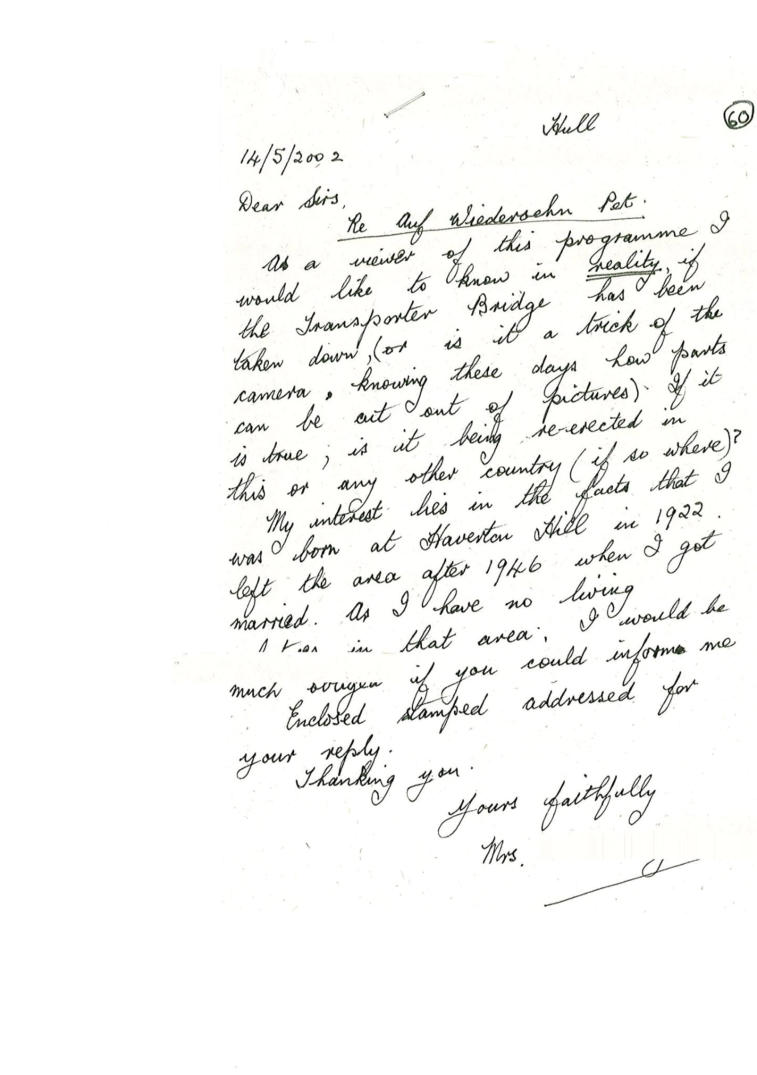 Hull
60
14/5/2002
Dear Sirs,
Re Auf Wiedersehn Pet.
As a viewer of this programme I
would like to know in reality, if
the Transporter Bridge has been
taken down, (or is it a trick of the
camera, knowing these days how parts
can be cut out of pictures). If it
is true, is it being re-erected in
this or any other country (if so where)?
My interest lies in the facts that I
was born at Haverton Hill in 1922.
left the area after 1946 when I got
married. As I have no living
in that area, I would be
much if you could informe me
Enclosed stamped addressed for
your reply.
Thanking you.
Yours faithfully
Mrs.